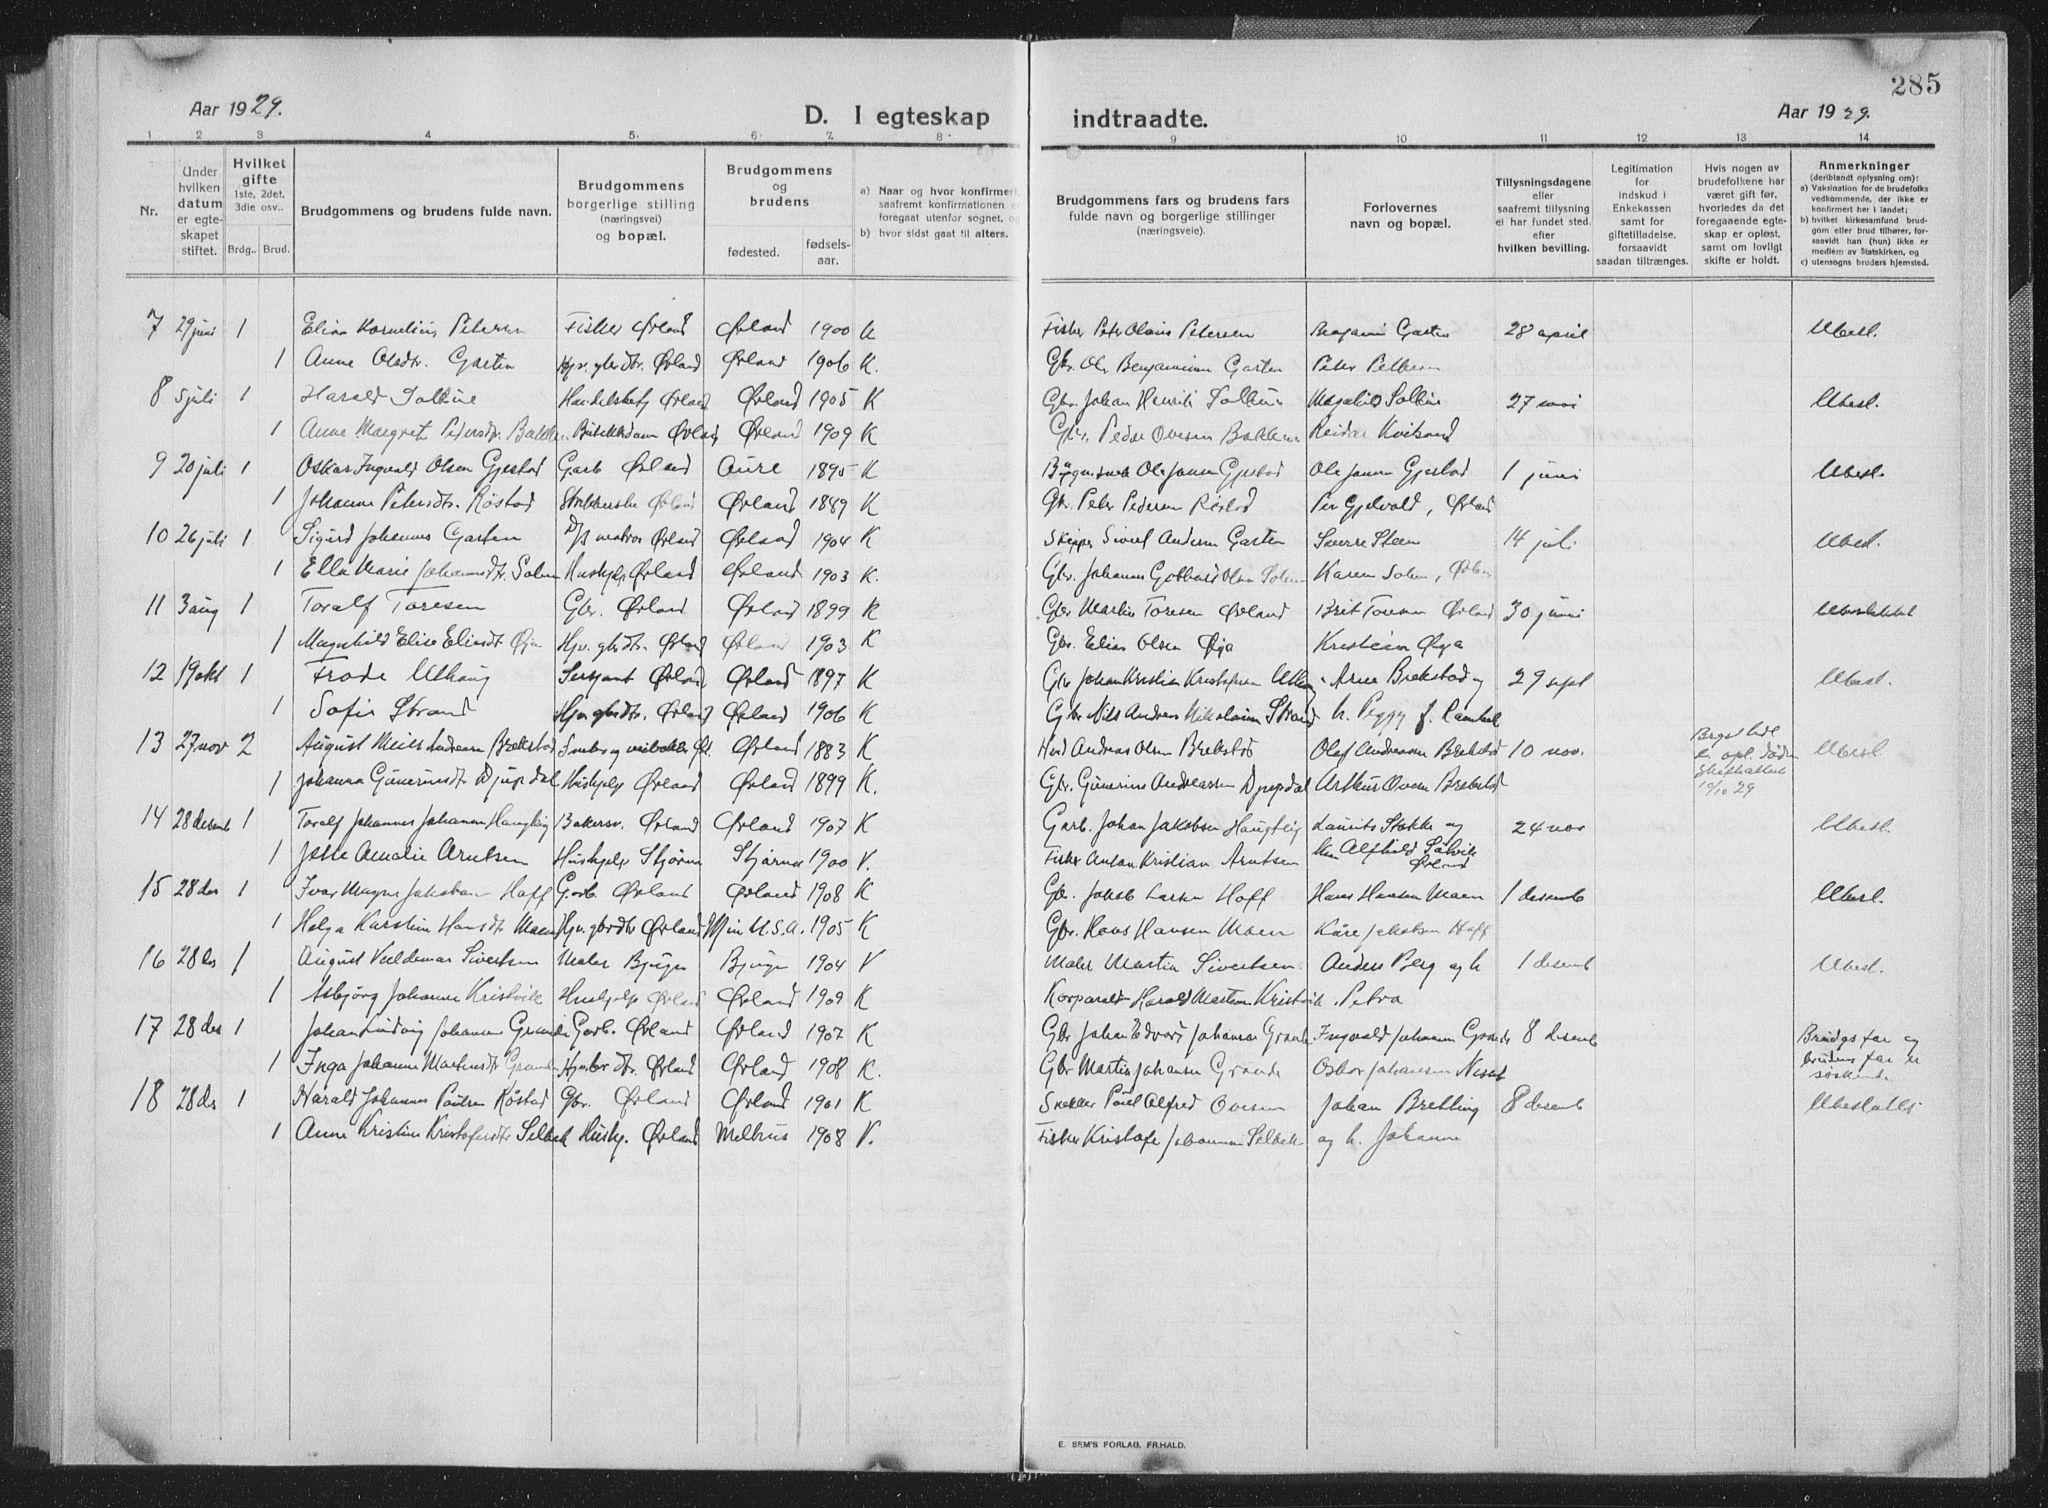 285
Aar 1929.
D. I egteskap indtraadte.
Aar 1929.
1 2 3 4 5. 6. 7. 8. 9 10 11 12 13 14
Nr.
Under hvilken datum er egteskapet stiftet.
Hvilket gifte
1ste, 2det, 3die osv..
Brdg.. Brud.
Brudgommens og brudens fulde navn.
Brudgommens borgerlige stilling (næringsvei) og bopæl.
Brudgommens og brudens
fødested. fødselsaar.
a) Naar og hvor konfirmert, saafremt konfirmationen er foregaat utenfor sognet, og
b) hvor sidst gaat til alters.
Brudgommens fars og brudens fars fulde navn og borgerlige stillinger (næringsveie).
Forlovernes navn og bopæl.
Tillysningsdagene eller saafremt tillysning ei har fundet sted. efter hvilken bevilling.
Legitimation for indskud i Enkekassen samt for giftetilladelse, forsaavidt saadan tiltrænges.
Hvis nogen av brudefolkene har været gift før, hvorledes da det foregaaende egteskap er opløst, samt om lovligt skifte er holdt.
Anmerkninger (deriblandt oplysning om): a) Vaksination for de brudefolks vedkommende, der ikke er konfirmert her i landet; b) hvilket kirkesamfund brudgom eller brud tilhører, forsaavidt han (hun) ikke er medlem av Statskirken, og c) utensogns bruders hjemsted.
7 29 juni 1 Elias Kornelius Petersen Fisker Ørland Ørland 1900 K Fisker Peter Olaus Petersen Benjamin Garten 28 april Ubesl.
1 Anne Olsdtr. Garten Hjv. gbrdtr. Ørland Ørland 1906 K. Gbr. Ole Benjaminsen Garten Peter Petersen
8 5 juli 1 Harald Sollie Ørland Ørland 1905 K Gbr. Johan Henrik 27 mai Ubesl.
1 Anne Margrete Pedersdtr. Bakken Butikkdame Ørland Ørland 1909 K Gbr. Peder Ovesen Bakken Reidar Kvitsand
9 20 juli 1 Oskar Ingvald Olsen Gjestad Garb Ørland Aure 1895 K Ole Jansen Gjestad Ole Jansen Gjestad 1 juni Ubesl.
1 Johanne Petersdtr. Røstad Ørland Ørland 1889 K Gbr. Peter Pedersen Røstad Per Gjelvold, Ørland
10 26 juli 1 Sigurd Johannes Garten D/S matros Ørland Ørland 1904 K Skipper Sivert Andersen Garten Sverre Steen 14 juli Ubesl.
1 Ella Marie Johannsdtr. Solem Hushjelp Ørland Ørland 1903 K. Gbr. Johannes Gotthard Olsen Solem Karen Solem, Ørland
11 3 aug 1 Toralf Toresen Gbr. Ørland Ørland 1899 K Gbr Martin Toresen Ørland Brit Toresen Ørland 30 juni
1 Magnhild Elise Eliasdtr Øja Hjv. gbrdtr. Ørland Ørland 1903 K Gbr. Elias Olsen Øja Kristian Øja
12 19 okt 1 Frode Uthaug Sersjant Ørland Ørland 1897 K Gbr Johan Kristian Kristofersen Uthaug Arne Brekstad og 29 sept Ubesl.
1 Sofie Strand Hjv. gbrdtr. Ørland Ørland 1906 K Gbr Nils Andreas Nikolaisen Strand h. Peggy f.
13 27 nov 2 August Andersen Brekstad Ørl. Ørland 1883 K Andreas Olsen Brekstad Olaf Andersen Brekstad 10 nov. opl. død 10/10 29 Ubesl.
1 Johanna Gunerinusdtr Djupdal Hushjelp Ørland Ørland 1899 K. Gbr. Gunerius Andreassen Djupdal Arthur Ovesen Brekstad
14 28 desemb 1 Toralf Johannes Johansen Haugtrig Bakersv. Ørland Ørland 1907 K Garb. Johan Jakobsen Laurits Stokke og 24 nov Ubesl.
1 Amalie Arntsen Hushjelp Stjørna Stjørna 1900 V. Fisker Anton Kristian Arntsen Alfhild Ørland
15 28 des 1 Ivar Magne Jakobsen Hoff Garb. Ørland Ørland 1908 K Gbr. Jakob Larsen Hoff Hans Hansen Moen 1 desemb Ubesl.
1 Helga Karstine Hansdtr Moen Hjv. gbrdtr Ørland Min U.S.A. 1905 K Gbr. Hans Hansen Moen Kåre Jakobsen Hoff
16 28 des 1 August Valdemar Sivertsen Maler Bjugn Bjugn 1904 V Maler Martin Sivertsen Anders Berg og h 1 desemb Ubesl.
1 Asbjørg Johanne Kristvik Hushjelp Ørland Ørland 1909 K Korporal Harald Martin Kristvik. Petra
17 28 des 1 Johan Ludvig Johansen Grande Garb. Ørland Ørland 1907 K Gbr Johan Edvard Johansen Grande Ingvald Johansen Grande 8 desemb Brudgs far og brudens far er søskende
1 Inga Johanne Martinsdtr Grande Ørland Ørland 1908 K. Gbr Martin Johansen Grande Oskar Johansen
18 28 des 1 Harald Johannes Paulsen Røstad Gbr. Ørland Ørland 1901 K Snekker Paul Alfred Ovesen Johan Bretting 8 desemb
1 Anne Kristine Kristofersdtr Selbekk Hushj. Ørland Melhus 1908 V. Fisker Kristofer Johannesen Selbekk og h. Johanne
E. SEM'S FORLAG, FR.HALD.